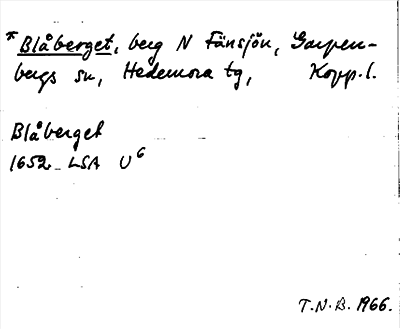 *Blåberget, berg N Fänsjön, Garpen-
bergs sn, Hedemora tg, Kopp.l.
Blåberget
1652 LSA U6
T.N.B. 1966.